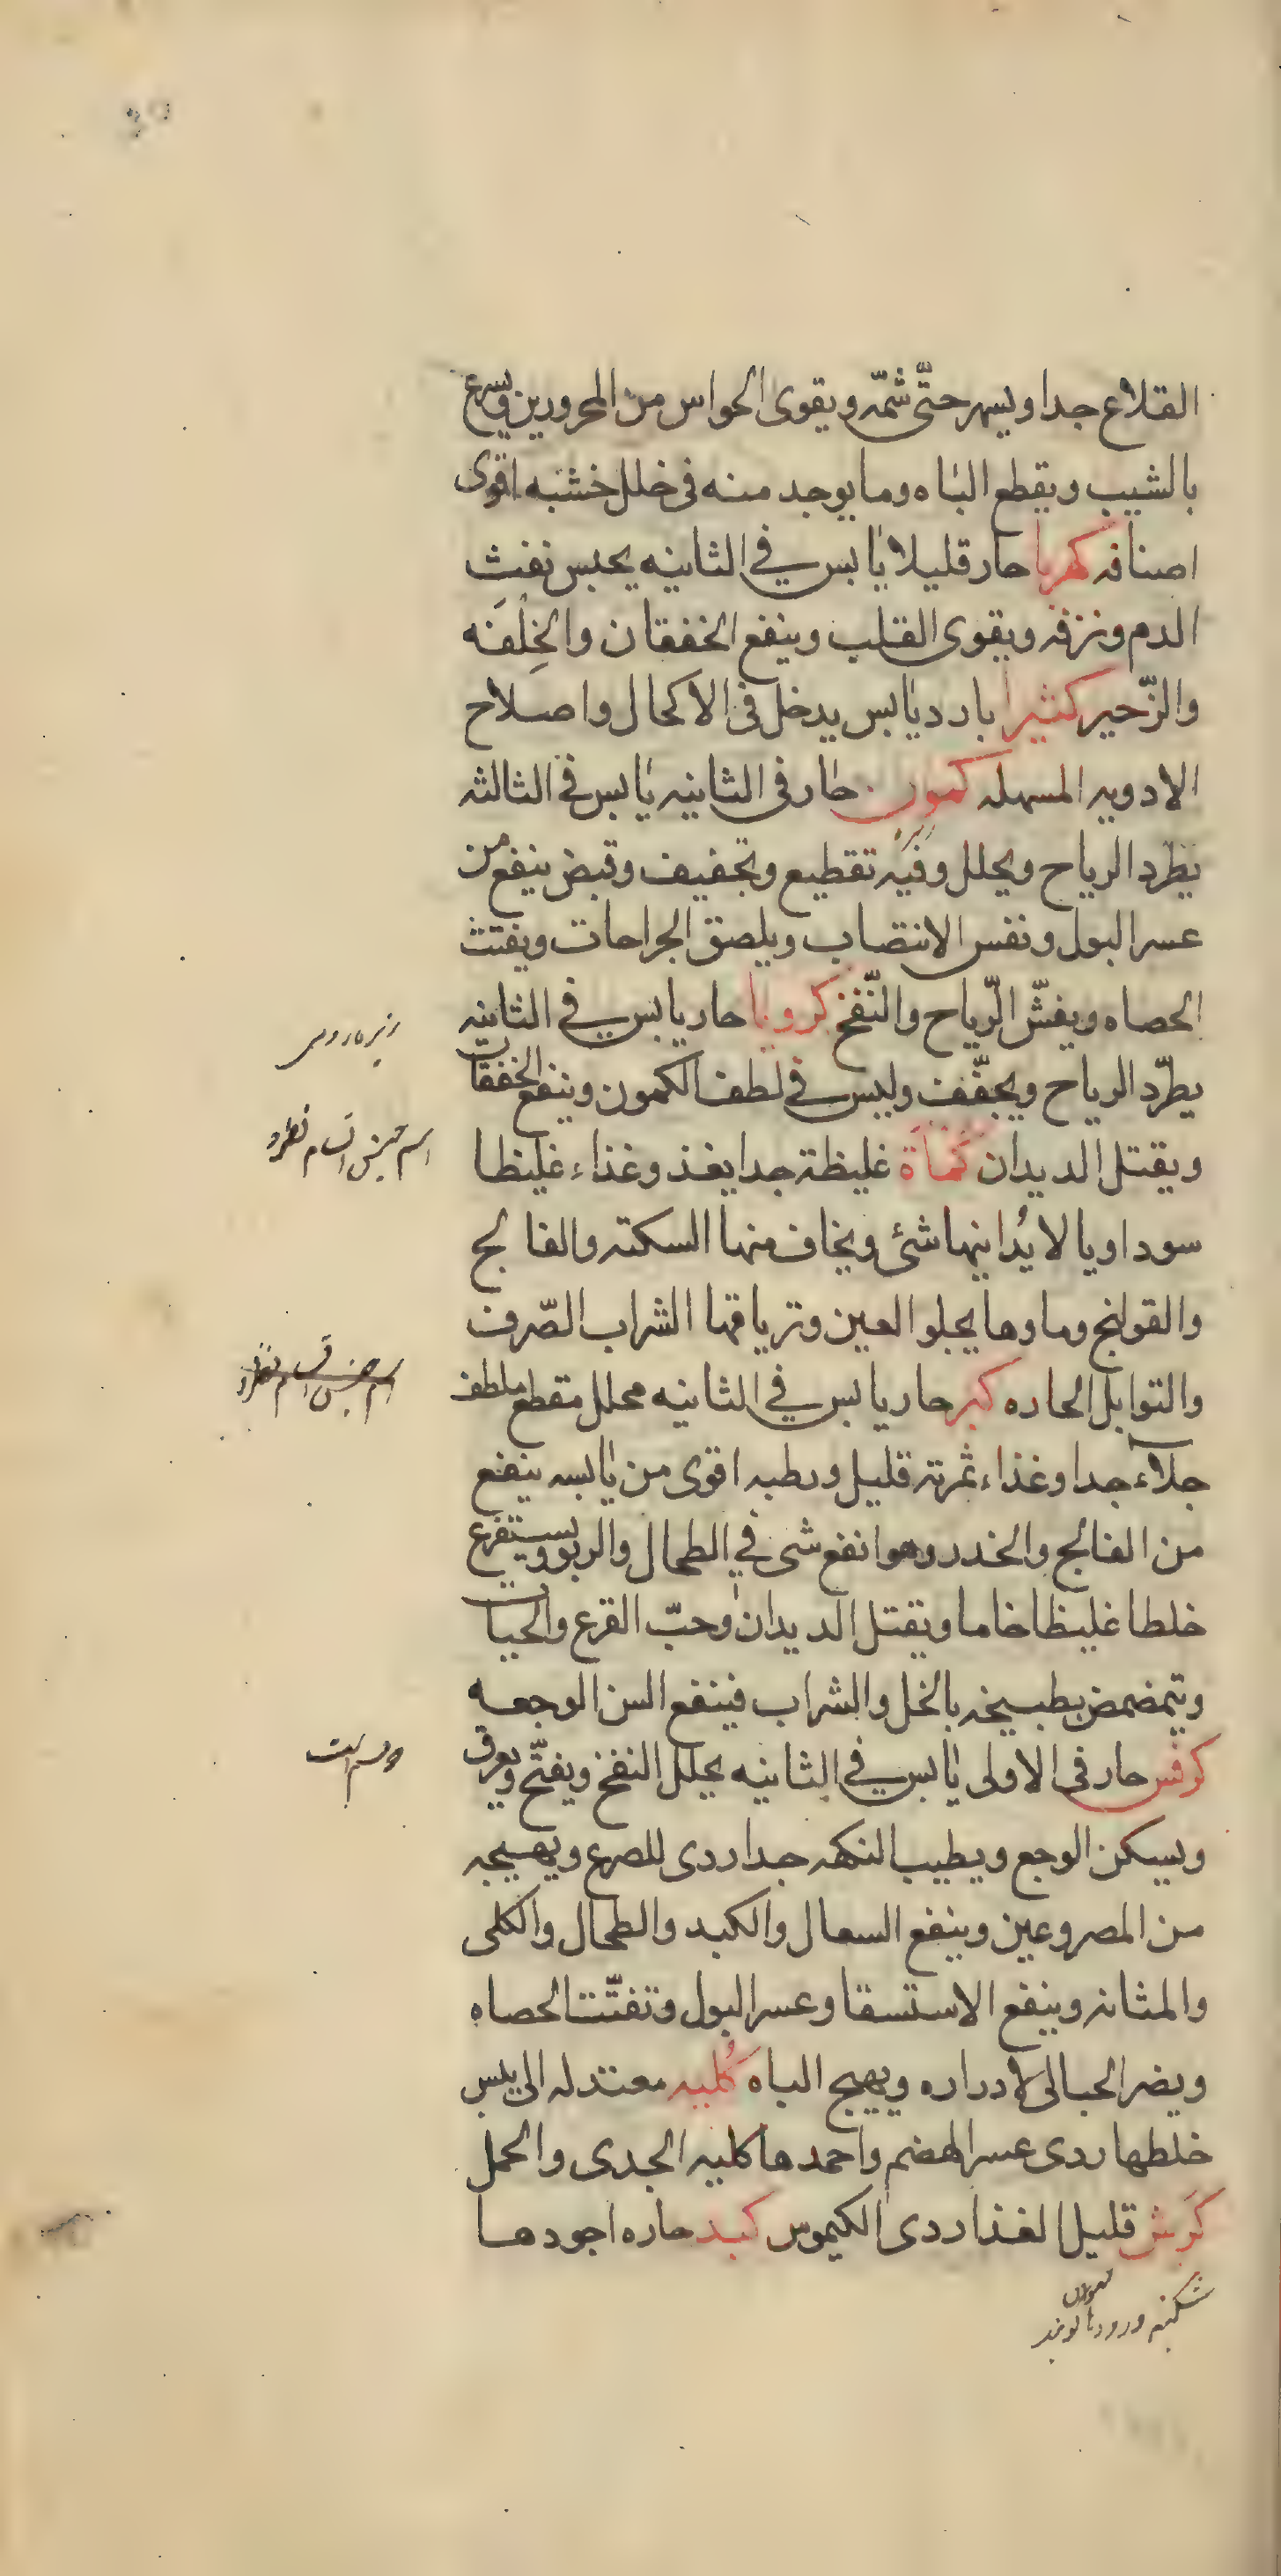 القلاع جدا ويسهر حتّى شمّه ويقوى الحواس من المحرورين ويسرع
بالشيب ويقطع الباه وما يوجد منه فى خلل خشبه اقوى
اصنافه كهربا حار قليلا يابس في الثانيه يحبس نفث
الدم ونزفه ويقوى القلب وينفع الخفقان والخِلْفَه
والزّحير كثيرا بارد يابس يدخل فى الاكحال واصلاح
الادويه المسهله كمون حار فى الثانيه يابس فى الثالثه
زيره
يطرد الرياح ويحلل وفيه تقطيع وتجفيف وقبض ينفع من
عسر البول ونفس الانتصاب ويلصق الجراحات ويفتت
الحصاه ويفشّ الرّياح والنّفخ كرويا حار يابس في الثانيه
زيره رومى
يطرّد الرياح ويجفّف وليس في لطف الكمون وينفع الخفقان
ويقتل الديدان كَمْأَة غليظة جدا يغذو غذاء غليظا
سوداويا لا يُدانيها شئ ويخاف منها السكته والفالج
والقولنج وماوها يجلو العين وترياقها الشراب الصّرف
والتوابل الحاره كبر حار يابس في الثانيه محلل مقطع ملطف
جلاّء جدا وغذاء ثمرته قليل ورطبه اقوى من يابسه ينفع
من الفالج والخدر وهو انفع شى في الطحال والربو ويستفرغ
خلطا غليظا خاما ويقتل الديدان وحبّ القرع والحيات
ويتمضمض بطبيخه بالخل والشراب فينفع السن الوجعه
كرفس حار فى الاولى يابس في الثانيه يحلل النفخ ويفتّح ويعرق
ويسكن الوجع ويطيب النكهه جدا ردى للصرع ويهيجه
من المصروعين وينفع السعال والكبد والطحال والكلى
والمثانه وينفع الاستسقا وعسر البول وتفتّت الحصاه
ويضر الحبالى لادراره ويهيج الباه كُليه معتدله الى يبس
خلطها ردى عسر الهضم واحمدها كليه الجدى والحمل
كرش قليل الغذا ردى الكيموس كبد حاره اجودها
شكنبه ورودها